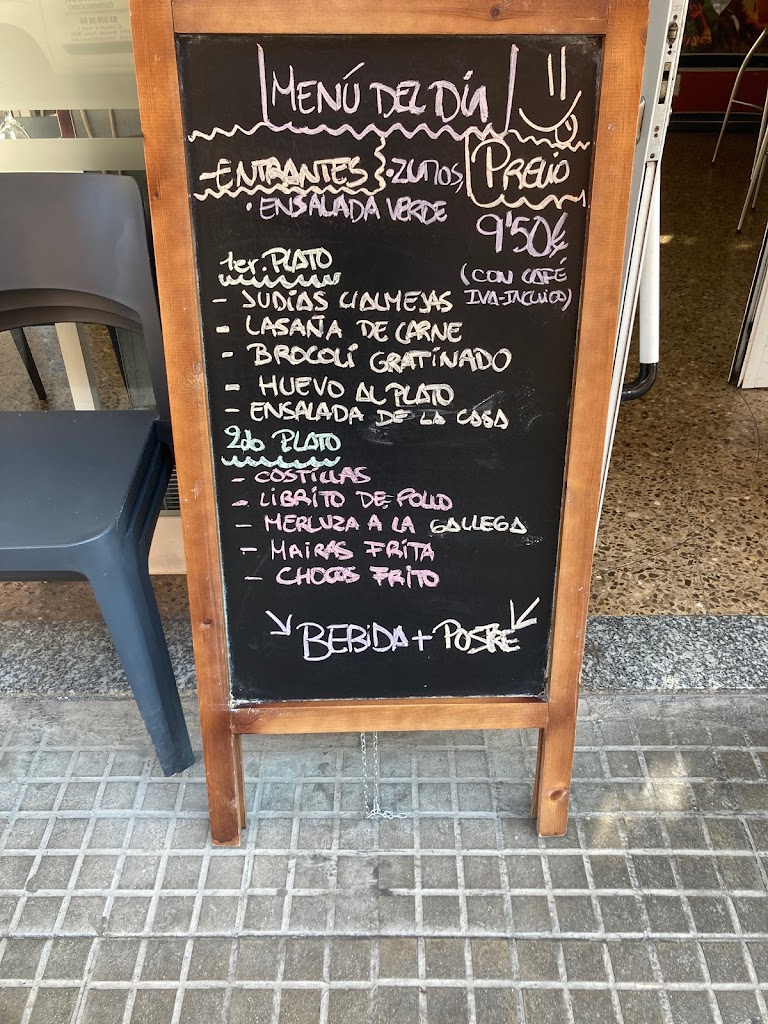 MENÚ DEL DÍA
-ENTRANTES
·ZUMOS,
·ENSALADA VERDE
PRECIO
9'50€
(CON CAFÉ
IVA-INCLUIDO)
1er. PLATO
- JUDÍAS Y ALMEJAS
- LASAÑA DE CARNE
- BROCOLÍ GRATINADO
- HUEVO AL PLATO
- ENSALADA DE LA CASA
2do PLATO
- COSTILLAS
- LIBRITO DE POLLO
- MERLUZA A LA GALLEGA
- MAIRAS FRITA
- CHOCOS FRITO
BEBIDA + POSTRE